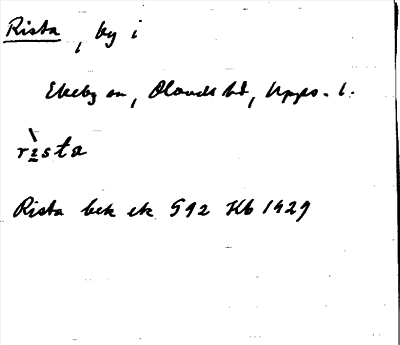 Rista, by i
Ekeby sn, Olands hd, Upps. l.
rista
Rista bek ek 592 Kb 1429